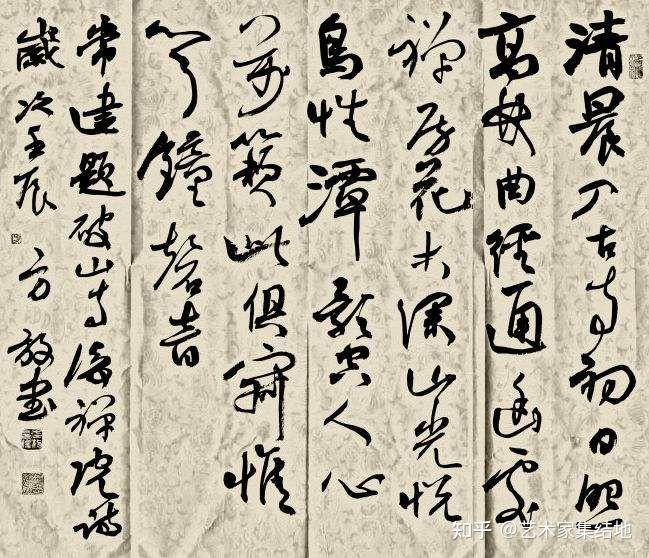 清晨入古寺初日照
高林曲徑通幽處
禪房花木深山光悦
鳥性潭影空人心
萬籟此俱寂惟
聞鐘磬音
常建題破山寺後禪院詩
歲次壬辰 方放書
知乎 @艺术家集结地